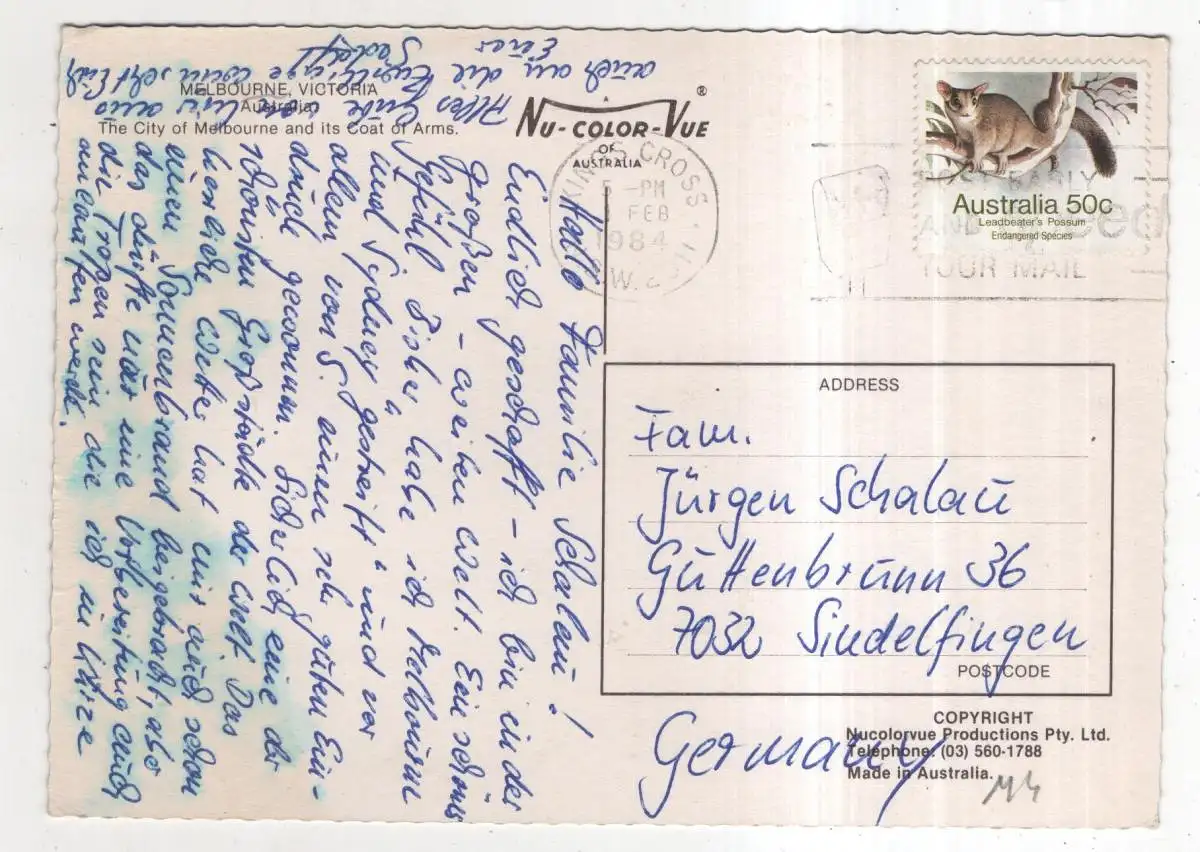 MELBOURNE, VICTORIA
Australia
The City of Melbourne and its Coat of Arms.
NU-COLOR-VUE ®
OF
AUSTRALIA
KINGS CROSS
5 -PM
FEB
1984
N.S.W.
POST EARLY
AND
YOUR MAIL
Australia 50c
Leadbeater's Possum
Endangered Species
Hallo Familie Schalau!
Endlich geschafft - ich bin in der
großen - weiten Welt. Ein schönes
Gefühl. Bisher habe ich Melbourne
und Sydney "gestreift" und vor
allem von S. einen sehr guten Ein-
druck gewonnen. Sicherlich eine der
schönsten Großstädte der Welt. Das
herrliche Wetter hat mir auch schon
einen Sonnenbrand beigebracht, aber
das dürfte nur eine Vorbereitung auf
die Tropen sein die ich in Kürze
anlaufen werde.
Alles Gute von hier aus
auch an die Zwillinge wünscht Euch
Euer
ADDRESS
Fam.
Jürgen Schalau
Guttenbrunn 36
7032 Sindelfingen
POSTCODE
Germany
COPYRIGHT
Nucolorvue Productions Pty. Ltd.
Telephone: (03) 560-1788
Made in Australia.